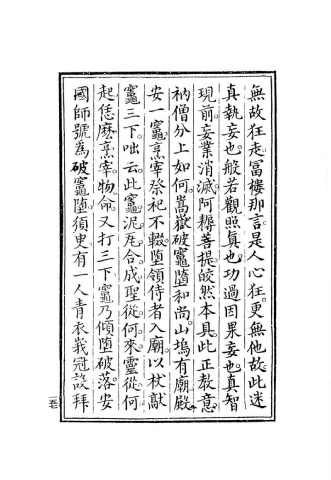 無故狂走冨樓那言是人心狂更無他故此迷
真執妄也般若觀照真也功過因果妄也真智
現前妄業消滅阿耨菩提皎然本具此正教意
衲僧分上如何嵩嶽破竈墮和尚山塢有廟殿
安一竈烹宰祭祀不輟墮領侍者入廟以杖敲
竈三下咄云此竈泥瓦合成聖從何來靈從何
起恁麽烹宰物命又打三下竈乃傾墮破落安
國師號為破竈墮須臾有一人青衣峩冠設拜